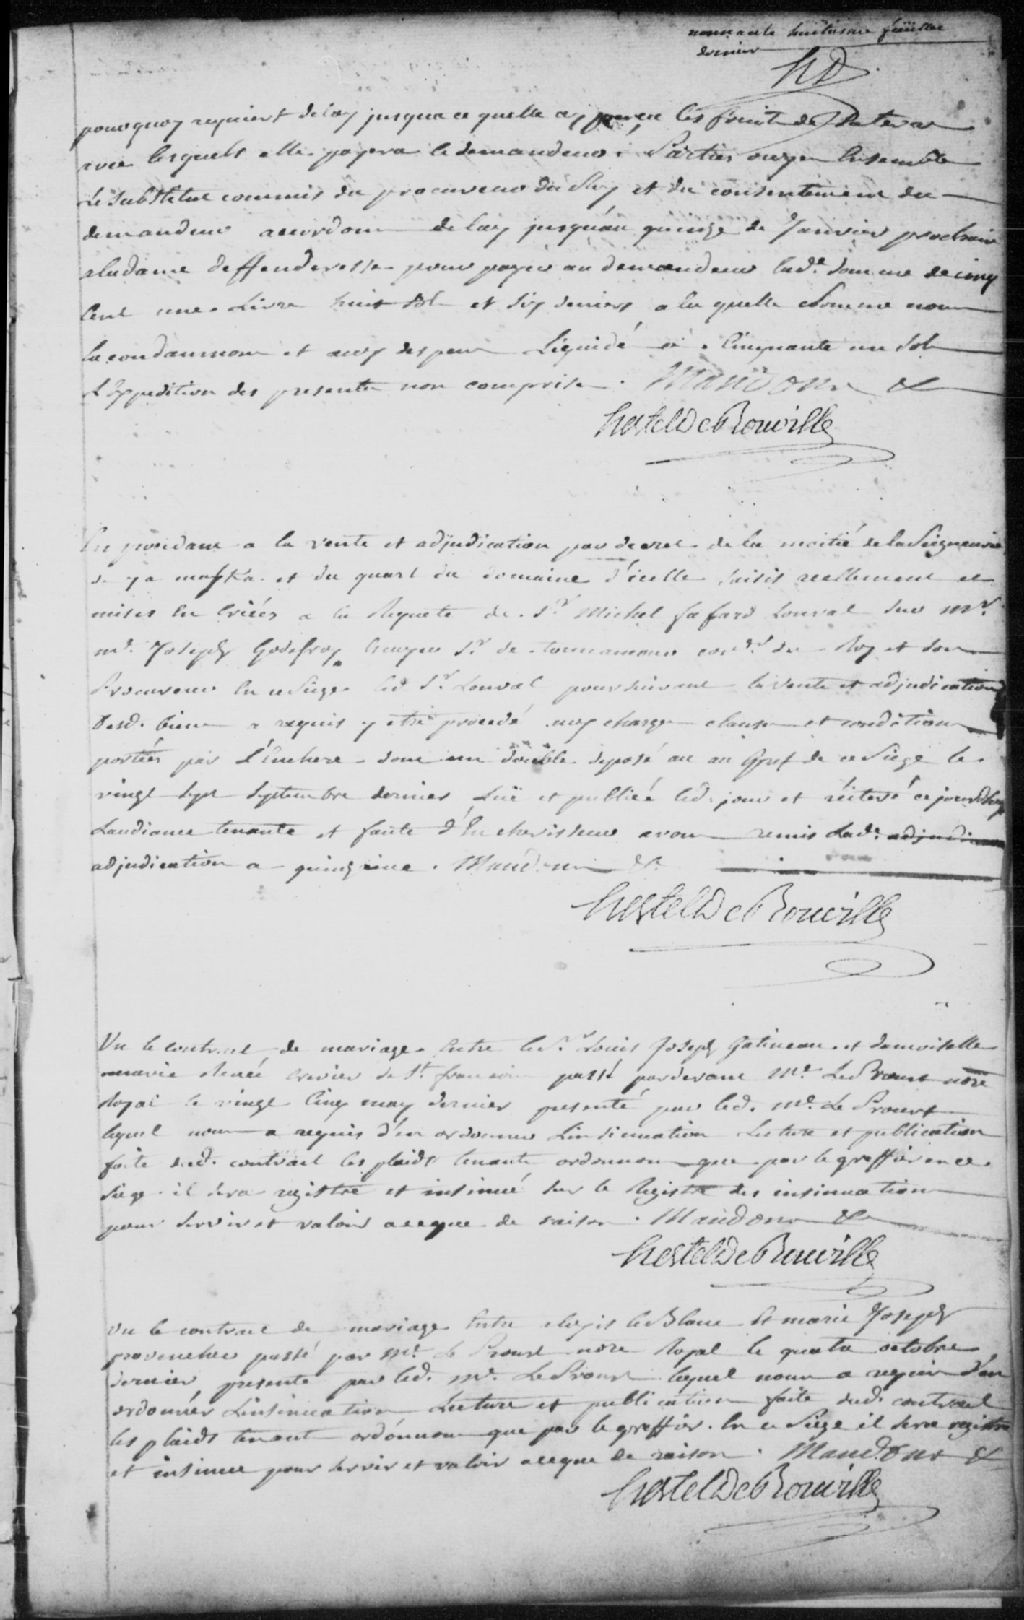 nonnante huitieme feüillet
dernier
HD
pourquoy requiert delay jusqua ce quelle ay perçu les fruits de terre
avec lesquels elle payera le demandeur. Parties ouyes Ensemble
Le substitut commis du procureur du Roy et du consentement du
demandeur accordons delay jusqu'au quinze de Janvier prochain
aladame deffenderesse pour payer au demandeur lade. somme de cinq
Cent une Livre huit sols et six deniers a la quelle somme nous
la condamnons et aux despens Liquidé à Cinquante un sols
L'Expedition des presente non comprise. Mandons &
hertel De Rouville
En procedant a la vente et adjudication par decret de la moitié de la Seigneurie
de yamaska et du quart du domaine d'icelle saisis reellement et
mises En Criées a la Requete de Sr. Michel fafard Lonval sur Mr.
me. Joseph Godefroy Ecuyer Sr. de tonnancour conser. du Roy et son
Procureur En ce Siege led. Sr. Lonval poursuivant la vente et adjudication
Desd. biens a requis y etre procedé aux charges clauses et conditions
portées par L'Enchere dont un double deposé au Gref de ce Siege le
vingt sept Septembre dernier Luë et publiée led. jour et réiteré ce jourd'huy
Laudiance tenante et faute d'Encherisseur avons remis Lade. adjudi
adjudication a quinzaine. Mandons &
hertel De Rouville
Vu le contract de mariage Entre le Sr. Louis Joseph Gatineau et demoiselle
marie crevier de St. francois passé pardevant Me. Le Proust nore
Royal le vingt Cinq may dernier presenté par led. Me. Le Proust
lequel nous a requis d'en ordonner Linsinuation Lecture et publication
faite dud. contract les plaids tenants ordonnons que par le greffier en ce
Siege il sera registré et insinué sur le Registre des insinuations
pour servir et valoir ce que de raison. Mandons &
hertel De Rouville
Vu le contract de mariage Entre Le Blanc Et marie Joseph
provencher passé par Me. Le Proust nore Royal le quatre octobre
dernier presenté par led. Me. Le Proust lequel nous a requis d'en
ordonner Linsinuation Lecture et publication faite dud. contract
les plaids tenant ordonnons que par le greffier En ce Siege il sera registré
et insinué pour servir et valoir ce que de raison. Mandons &
hertel De Rouville